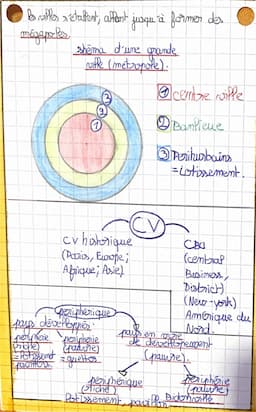 villes s'étalent, allant jusqu'à former des
mégapoles
shéma d'une grande
ville (métropole).
① centre ville
② Banlieue
③ Periurbains
= Lotissement.
② ③ ①
CV
CV historique
(Paris, Europe;
Afrique; Asie).
CBD
(central
Business,
District)
(New-york)
Amérique du
Nord.
périphérique
pays développés
périphérie
(riche)
périphérie
(pauvre)
= guettos
pays en voie
de développement
(pauvre).
périphérique
(riche)
périphérie
(pauvre)
Lotissement, pavillon
Bidonville